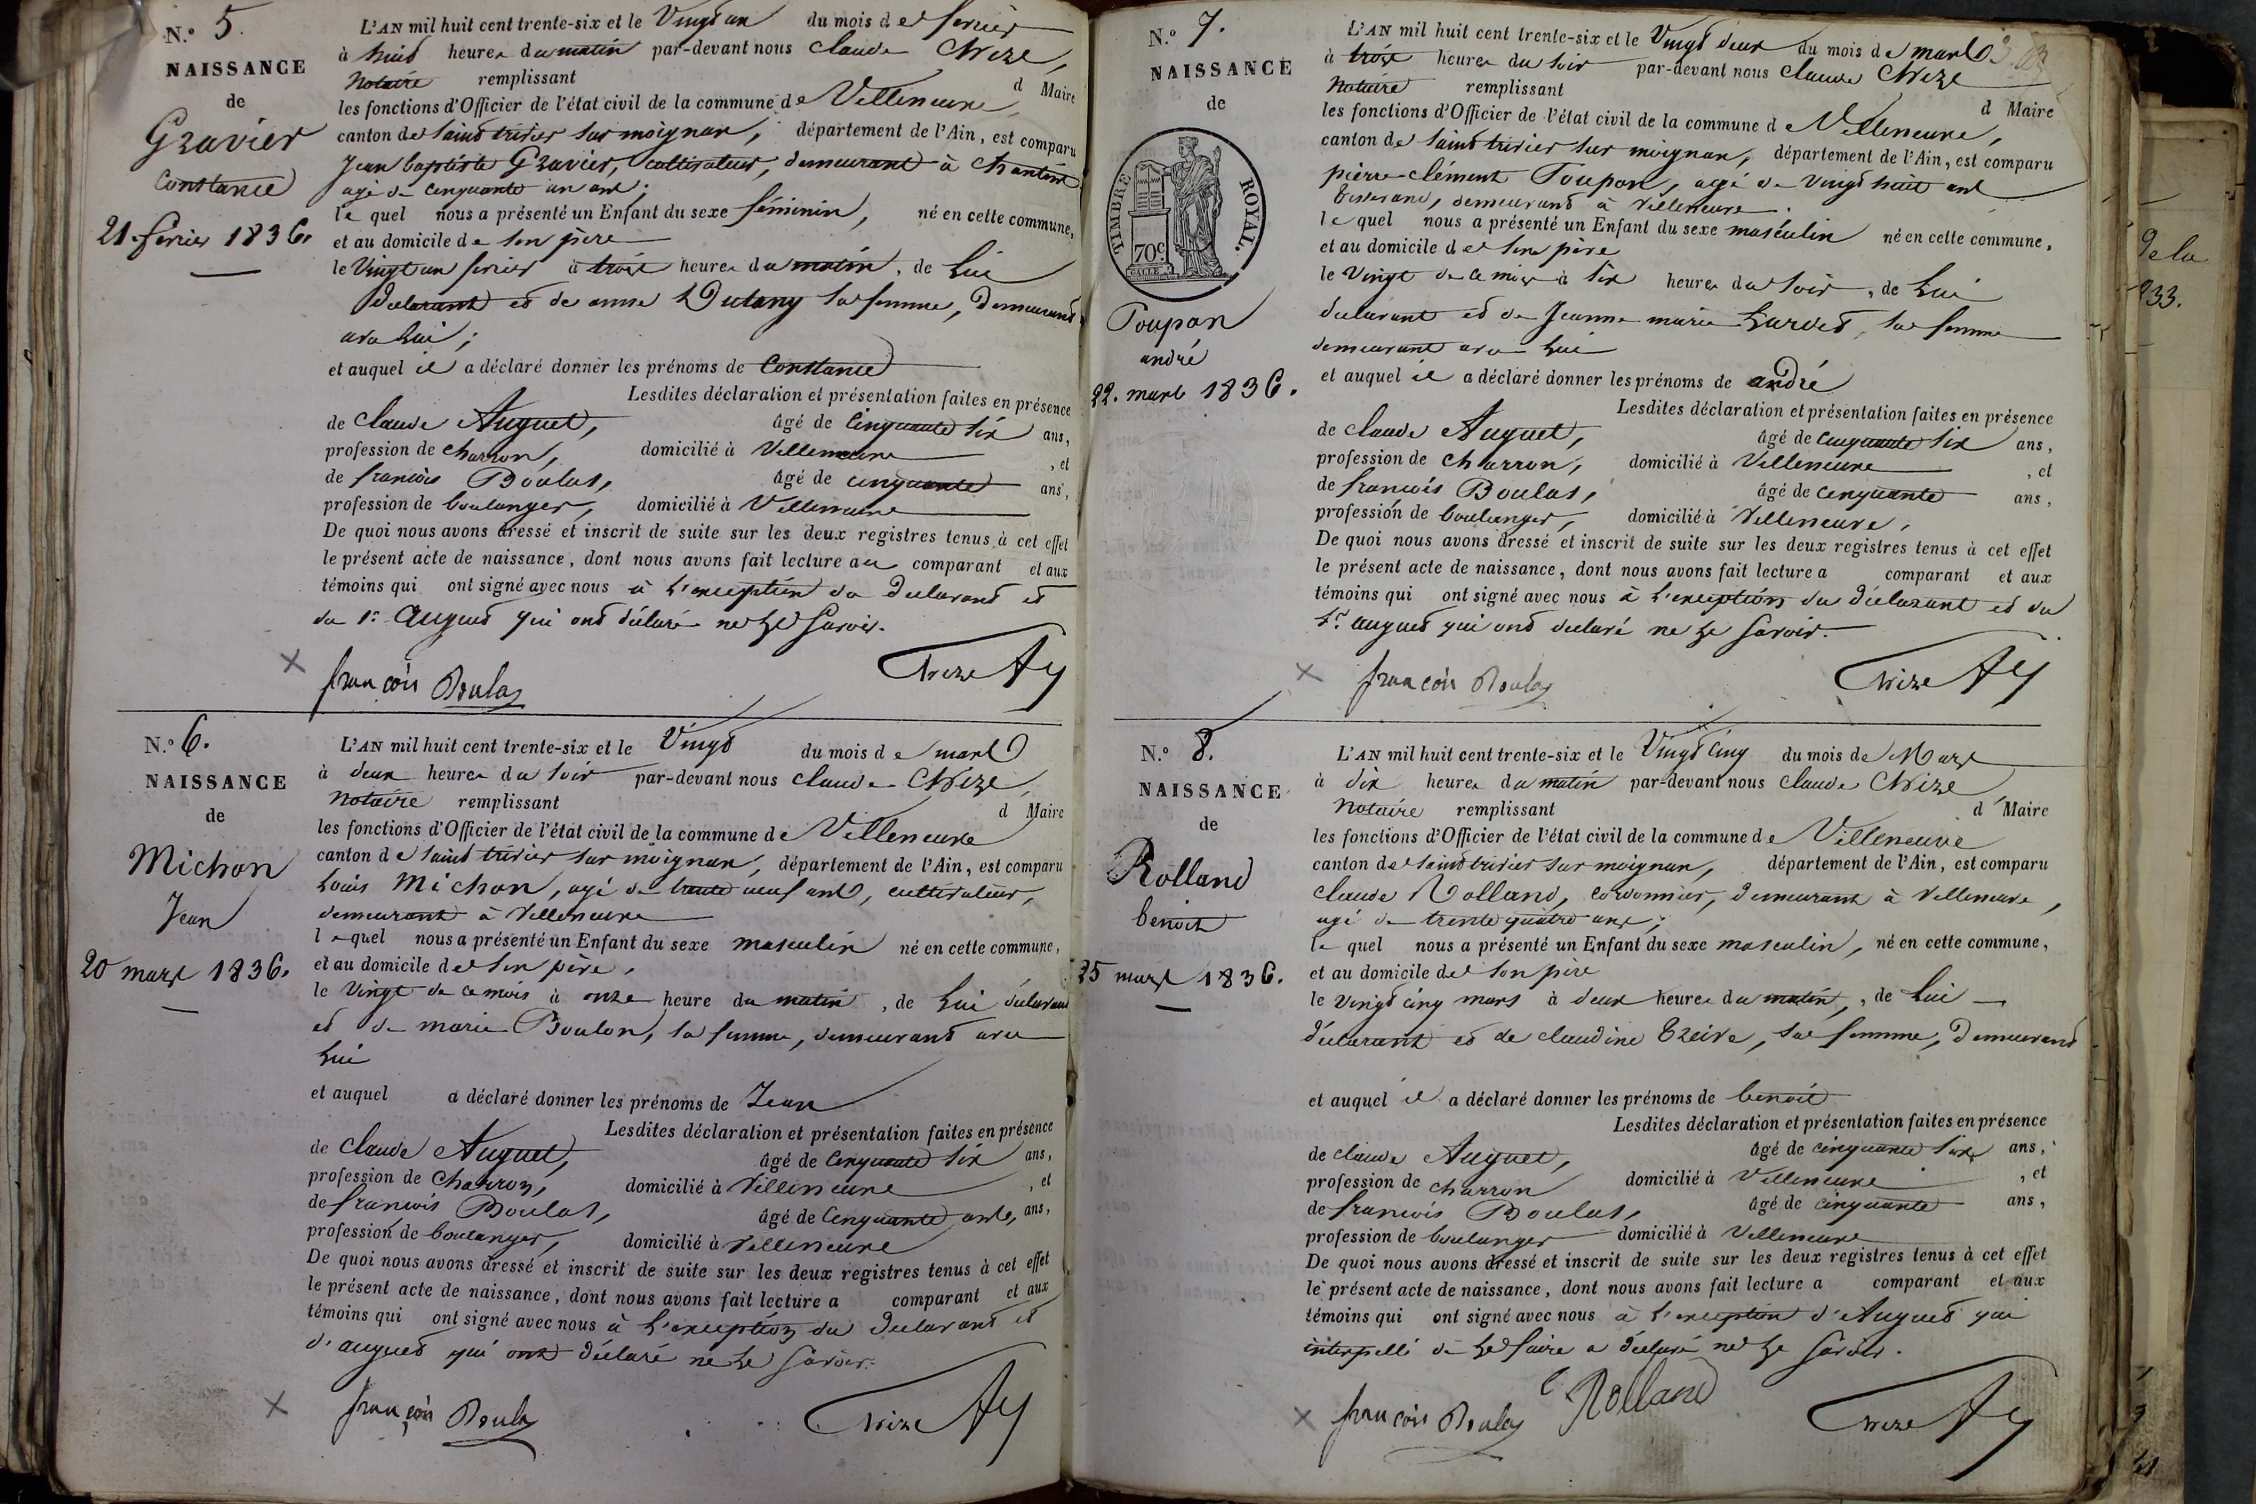 N.º 5.
NAISSANCE
de
Gravier
Constance
21 fevrier 1836.
L'AN mil huit cent trente-six et le Vingt un du mois de fevrier
à huit heures du matin par-devant nous Claude Chize,
Notaire remplissant d Maire
les fonctions d'Officier de l'état civil de la commune de Villeneuve,
canton de Saint trivier sur moignan, département de l'Ain, est comparu
Jean baptiste Gravier, cultivateur, demeurant à Chanteins
agé de cinquante un ans;
le quel nous a présenté un Enfant du sexe féminin, né en cette commune,
et au domicile de son père
le Vingt un fevrier à trois heures du matin, de Lui
declarant et de anne Dutang sa femme, demeurant
avec Lui;
et auquel il a déclaré donner les prénoms de Constance
Lesdites déclaration et présentation faites en présence
de Claude Auguet, âgé de Cinquante six ans,
profession de charron, domicilié à Villeneuve, et
de francois Boulas, âgé de cinquante ans,
profession de boulanger, domicilié à Villeneuve
De quoi nous avons dressé et inscrit de suite sur les deux registres tenus à cet effet
le présent acte de naissance, dont nous avons fait lecture au comparant et aux
témoins qui ont signé avec nous à L'exception du Declarant et
du sr. Auguet qui ont déclaré ne le Savoir.
françois Boulas Chize
N.º 6.
NAISSANCE
de
Michon
Jean
20 mars 1836.
L'AN mil huit cent trente-six et le Vingt du mois de mars
à deux heures du soir par-devant nous claude Chize,
Notaire remplissant d Maire
les fonctions d'Officier de l'état civil de la commune de Villeneuve
canton de Saint trivier sur moignan, département de l'Ain, est comparu
Louis Michon, agé de trente neuf ans, cultivateur,
demeurant à Villeneuve
lequel nous a présenté un Enfant du sexe masculin né en cette commune,
et au domicile de son père,
le Vingt de ce mois à onze heure du matin, de Lui déclarant
et de marie Boulon, sa femme, demeurant avec
Lui
et auquel a déclaré donner les prénoms de Jean
Lesdites déclaration et présentation faites en présence
de Claude Auguet, âgé de Cinquante six ans,
profession de Charron, domicilié à Villeneuve, et
de francois Boulas, âgé de Cinquante ans, ans,
profession de boulanger, domicilié à Villeneuve
De quoi nous avons dressé et inscrit de suite sur les deux registres tenus à cet effet
le présent acte de naissance, dont nous avons fait lecture a comparant et aux
témoins qui ont signé avec nous à L'exception du Declarant et
d'auguet qui ont déclaré ne le Savoir.
françois Boulas Chize
N.º 7.
NAISSANCE
de
TIMBRE ROYAL.
70c
Poupon
andré
22. mars 1836.
L'AN mil huit cent trente-six et le Vingt deux du mois de mars
à trois heures du soir par-devant nous Claude Chize
Notaire remplissant d Maire
les fonctions d'Officier de l'état civil de la commune de Villeneuve,
canton de Saint trivier sur moignan, département de l'Ain, est comparu
pierre clément Poupon, agé de Vingt huit ans
tisserand, demeurant à Villeneuve.
le quel nous a présenté un Enfant du sexe masculin né en cette commune,
et au domicile de son père
le Vingt de ce mois à six heures du soir, de Lui
declarant et de Jeanne marie Lurdet, sa femme
demeurant avec Lui
et auquel il a déclaré donner les prénoms de andré
Lesdites déclaration et présentation faites en présence
de claude Auguet, âgé de cinquante six ans,
profession de Charron, domicilié à Villeneuve, et
de francois Boulas, âgé de Cinquante ans,
profession de boulanger, domicilié à Villeneuve,
De quoi nous avons dressé et inscrit de suite sur les deux registres tenus à cet effet
le présent acte de naissance, dont nous avons fait lecture a comparant et aux
témoins qui ont signé avec nous à L'exception du déclarant et du
sr. auguet qui ont declaré ne le Savoir.
françois Boulas Chize
N.º 8.
NAISSANCE
de
Rolland
benoit
25 mars 1836.
L'AN mil huit cent trente-six et le Vingt Cinq du mois de Mars
à dix heures du matin par-devant nous Claude Chize
Notaire remplissant d Maire
les fonctions d'Officier de l'état civil de la commune de Villeneuve
canton de Saint trivier sur moignan, département de l'Ain, est comparu
Claude Rolland, cordonnier, demeurant à Villeneuve,
agé de trente quatre ans;
le quel nous a présenté un Enfant du sexe masculin, né en cette commune,
et au domicile de son père
le Vingt cinq mars à deux heures du matin, de Lui
déclarant et de claudine Treive, sa femme, demeurant
et auquel il a déclaré donner les prénoms de benoit
Lesdites déclaration et présentation faites en présence
de claude Auguet, âgé de cinquante six ans,
profession de charron domicilié à Villeneuve, et
de francois Boulas, âgé de cinquante ans,
profession de boulanger domicilié à Villeneuve
De quoi nous avons dressé et inscrit de suite sur les deux registres tenus à cet effet
le présent acte de naissance, dont nous avons fait lecture a comparant et aux
témoins qui ont signé avec nous à L'exception d'Auguet qui
interpellé de Le faire a déclaré ne le Savoir.
françois Boulas C Rolland Chize
de la
233.